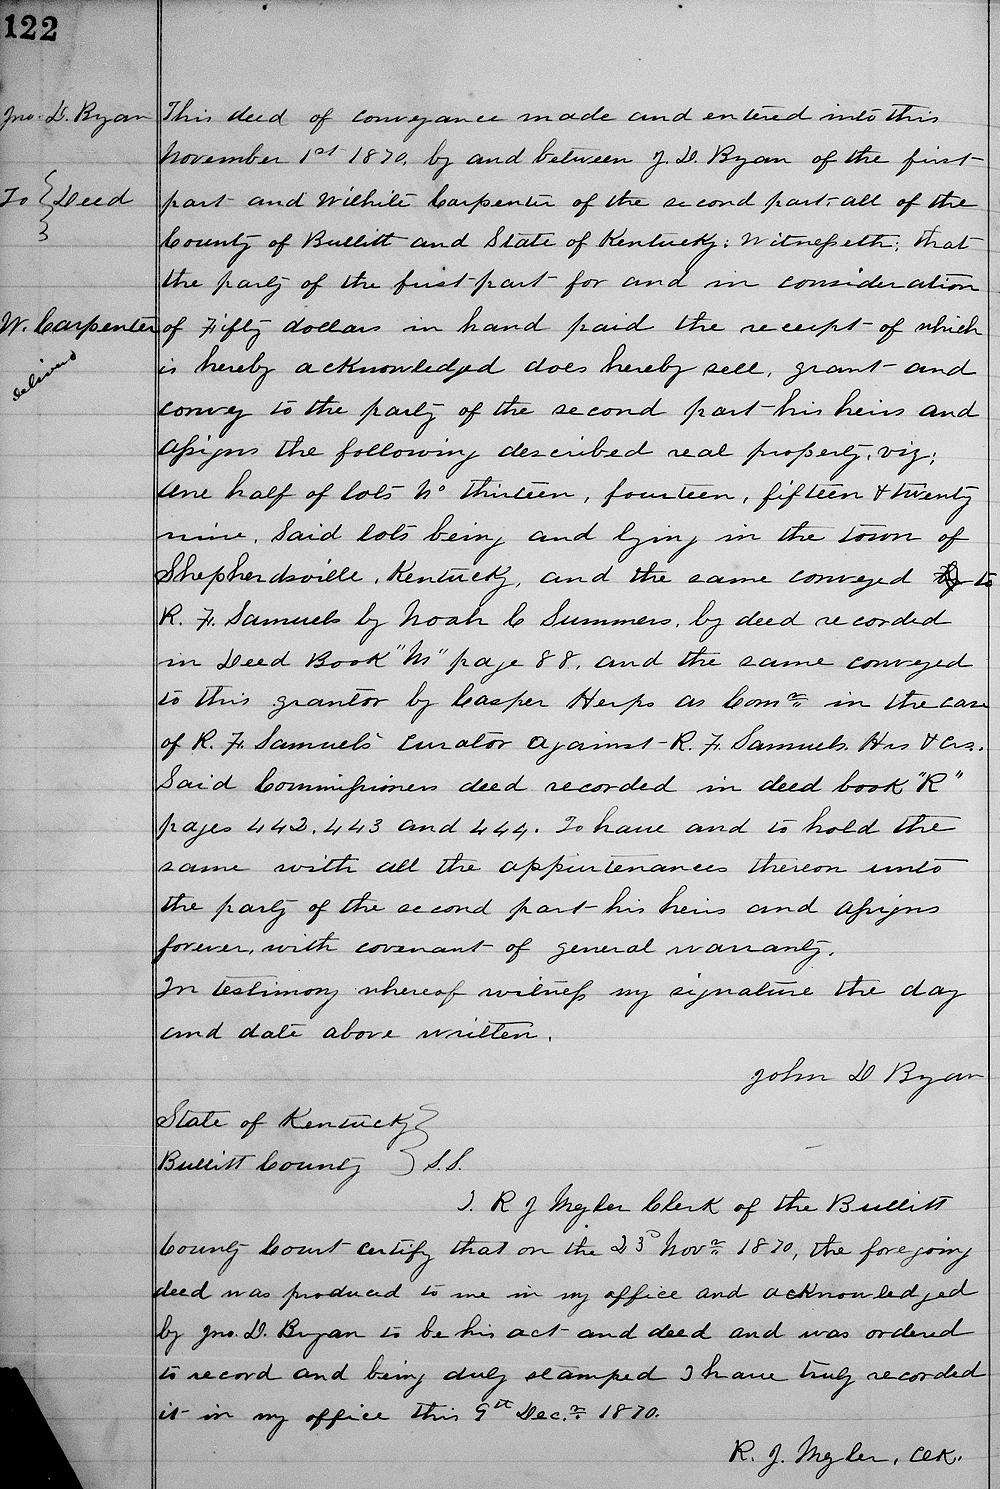 122
Jno. D. Ryan
To } Deed
W. Carpenter
Delivered
This deed of conveyance made and entered into this
November 1st 1870, by and between J. D. Ryan of the first
part and Wilhite Carpenter of the second part, all of the
County of Bullitt and State of Kentucky: Witnesseth; that
the party of the first part for and in consideration
of Fifty dollars in hand paid the receipt of which
is hereby acknowledged does hereby sell, grant and
convey to the party of the second part his heirs and
assigns the following described real property, viz;
One half of lots No thirteen, fourteen, fifteen & twenty
nine. Said lots being and lying in the town of
Shepherdsville, Kentucky, and the same conveyed to
R. F. Samuels by Noah C Summers, by deed recorded
in Deed Book "M" page 88, and the same conveyed
to this grantor by Casper Herps as Comr. in the case
of R. F. Samuels curator against R. F. Samuels Hrs & Crs.
Said Commissioners deed recorded in deed book "R"
pages 442, 443 and 444. To have and to hold the
same with all the appurtenances thereon unto
the party of the second part his heirs and assigns
forever, with covenant of general warranty.
In testimony whereof witness my signature the day
and date above written.
John D Ryan
State of Kentucky }
Bullitt County } S.S.
I, R J Meyler Clerk of the Bullitt
County Court certify that on the 23d Novr. 1870, the foregoing
deed was produced to me in my office and acknowledged
by Jno. D. Ryan to be his act and deed and was ordered
to record and being duly stamped I have truly recorded
it in my office this 9th Decr. 1870.
R. J. Meyler, Clk.